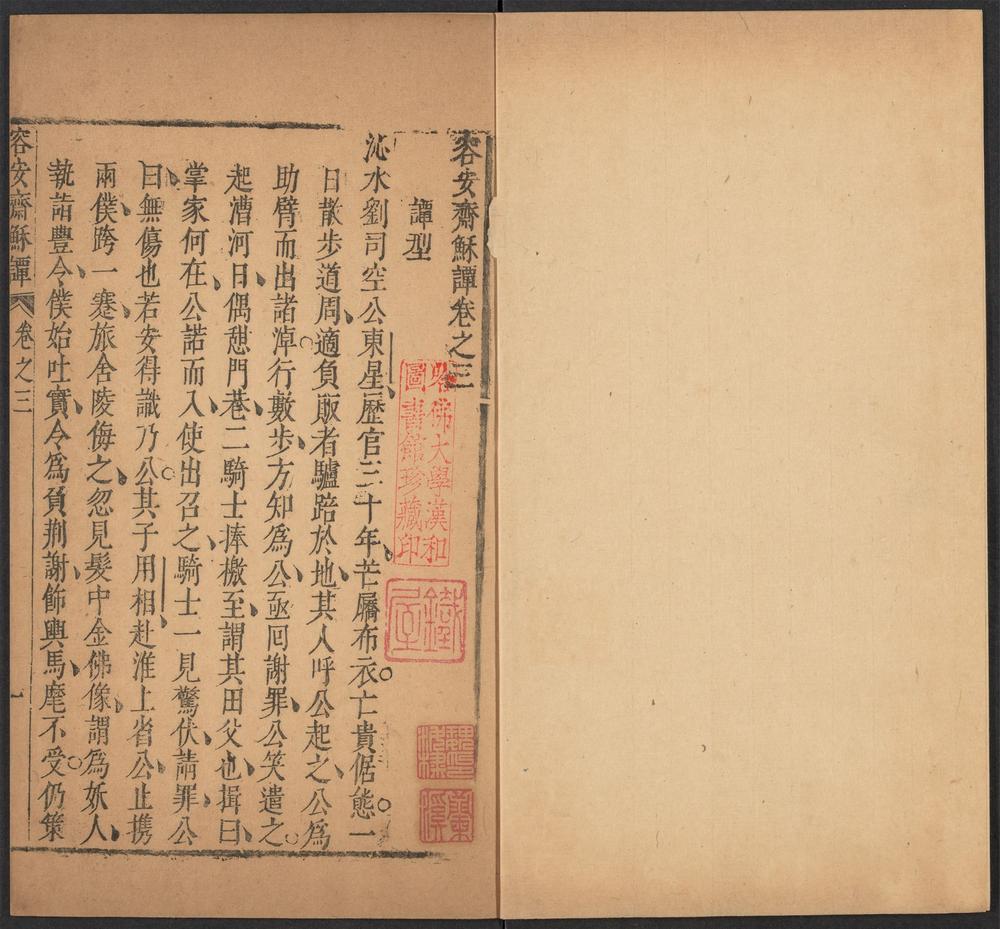 容安齋穌譚卷之三
譚型
沁水劉司空公東星歷官三十年芒屩布衣亡貴倨態一
日散步道周適負販者驢踣於地其人呼公起之公爲
助臂而出諸淖行數步方知爲公亟囘謝罪公笑遣之
起漕河日偶憩門巷二騎士捧檄至謂其田父也揖曰
掌家何在公諾而入使出召之騎士一見驚伏請罪公
曰無傷也若安得識乃公其子用相赴淮上省公止携
兩僕跨一蹇旅舍陵侮之忽見髮中金佛像謂爲妖人
執詣豐令僕始吐實令爲負荆謝飾輿馬麾不受仍策
容安齋穌譚 卷之三 一
哈佛大學漢和
圖書館珍藏印